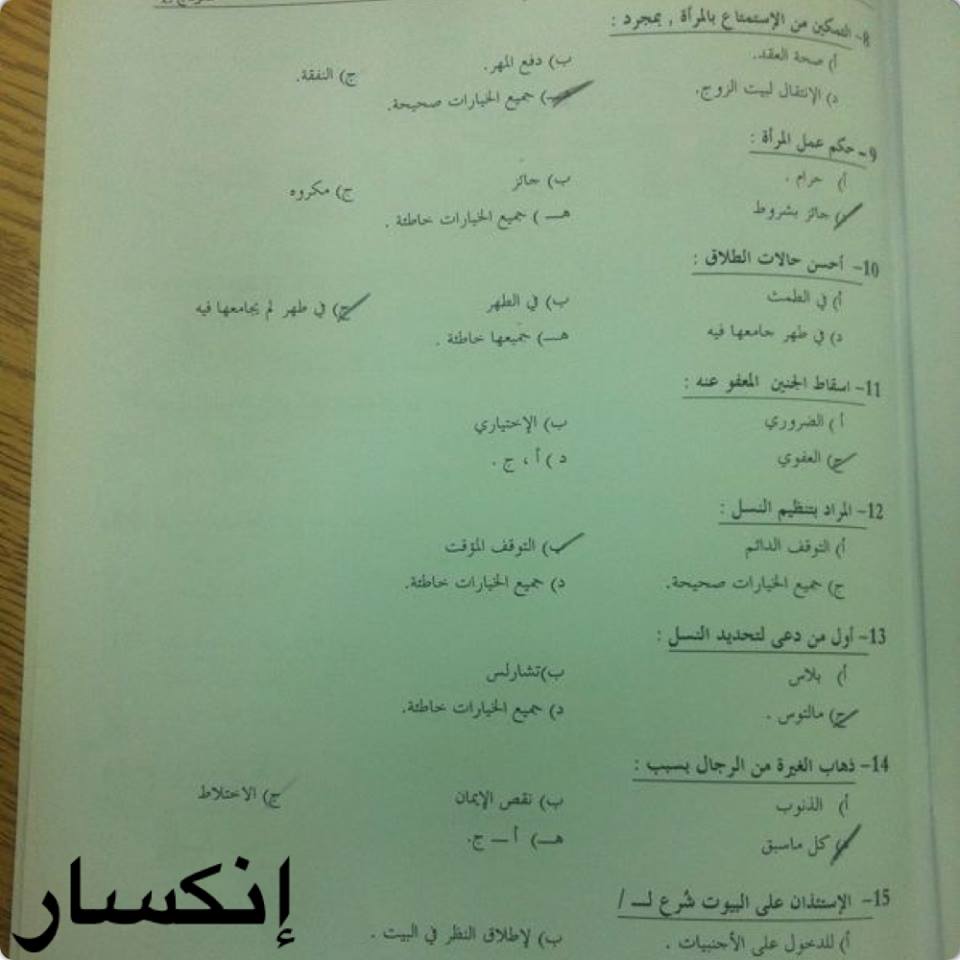 8- التمكين من الإستمتاع بالمرأة , بمجرد :
أ) صحة العقد. ب) دفع المهر. ج) النفقة.
د) الإنتقال لبيت الزوج. هـ) جميع الخيارات صحيحة.
9- حكم عمل المرأة :
أ) حرام . ب) جائز ج) مكروه
د) جائز بشروط هـ ) جميع الخيارات خاطئة .
10- أحسن حالات الطلاق :
أ) في الطمث ب) في الطهر ج) في طهر لم يجامعها فيه
د) في طهر جامعها فيه هـ) جميعها خاطئة .
11- اسقاط الجنين المعفو عنه :
أ ) الضروري ب) الإختياري
ج) العفوي د ) أ ، ج .
12- المراد بتنظيم النسل :
أ) التوقف الدائم ب) التوقف المؤقت
ج) جميع الخيارات صحيحة. د) جميع الخيارات خاطئة.
13- أول من دعى لتحديد النسل :
أ) بلاس ب)تشارلس
ج) مالتوس . د) جميع الخيارات خاطئة.
14- ذهاب الغيرة من الرجال بسبب :
أ) الذنوب ب) نقص الإيمان ج) الاختلاط
د) كل ماسبق هـ) أ – ج.
15- الإستئذان على البيوت شُرع لـ /
أ) للدخول على الأجنبيات . ب) لإطلاق النظر في البيت .
إنكسار